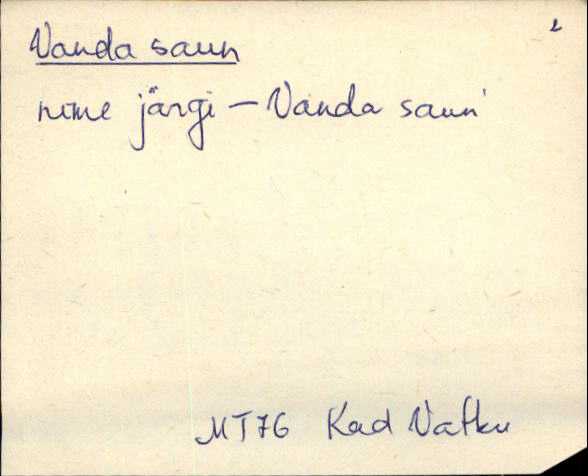 2
Vanda saun
nime järgi — Vanda saun'
MT76 Kad Vatku